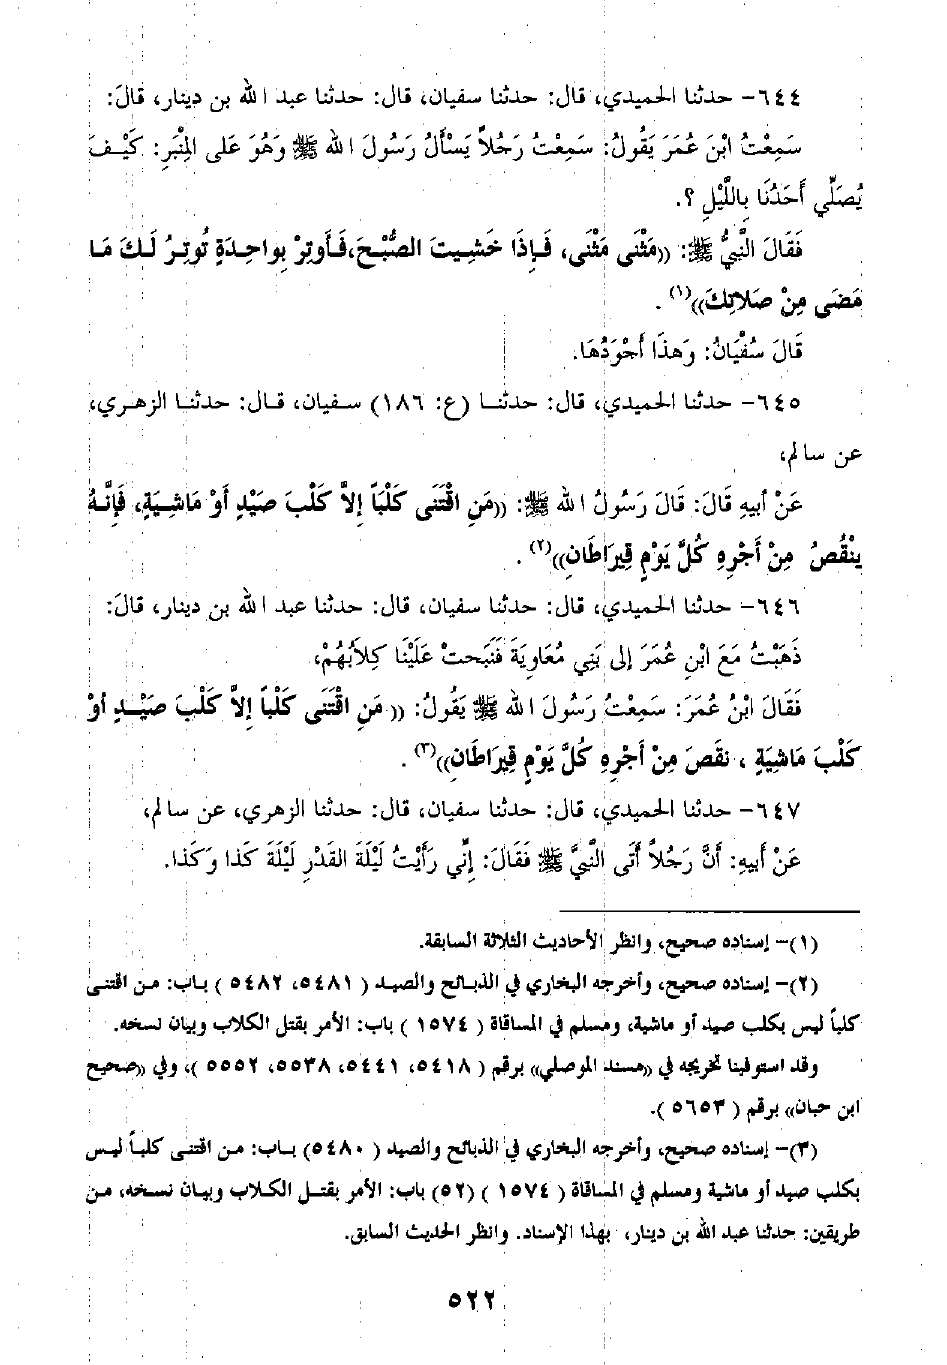 ٦٤٤- حدثنا الحميدي، قال: حدثنا سفيان، قال: حدثنا عبد الله بن دينار، قالَ:
سَمِعْتُ ابْنَ عُمَرَ يَقُولُ: سَمِعْتُ رَجُلاً يَسْأَلُ رَسُولَ الله ﷺ وَهُوَ عَلى المِنْبَرِ: كَيْـفَ
يُصَلِّي أَحَدُنَا بِاللَّيْلِ ؟.
فَقَالَ النَّبِيُّ ﷺ: ((مَثْنَى مَثْنَى، فَـإِذَا خَشِيتَ الصُّبْحَ،فَـأَوتِرْ بِواحِدَةٍ تُوتِرُ لَـكَ مَا
مَضَى مِنْ صَلاتِكَ))(١) .
قَالَ سُفْيَانُ: وَهذَا أَجْوَدُهَا.
٦٤٥- حدثنا الحميدي، قال: حدثنـا (ع: ١٨٦) سـفيان، قـال: حدثنـا الزهـري،
عن سالم،
عَنْ أبيهِ قَالَ: قَالَ رَسُولُ الله ﷺ: ((مَنِ اقْتَنَى كَلْبَاً إلاَّ كَلْبَ صَيْدٍ أَوْ مَاشِيَةٍ، فَإِنَّـهُ
يَنْقُصُ مِنْ أَجْرِهِ كُلَّ يَوْمٍ قِيرَاطَانِ))(٢) .
٦٤٦- حدثنا الحميدي، قال: حدثنا سفيان، قال: حدثنا عبد الله بن دينار، قالَ:
ذَهَبْتُ مَعَ ابْنِ عُمَرَ إلى بَنِي مُعَاوِيَةَ فَنَبَحتْ عَلَيْنَا كِلاَبُهُمْ،
فَقَالَ ابْنُ عُمَرَ: سَمِعْتُ رَسُولَ الله ﷺ يَقُولُ: (( مَنِ اقْتَنَى كَلْباً إلاَّ كَلْبَ صَيْـدٍ أوْ
كَلْبَ مَاشِيَةٍ ، نقَصَ مِنْ أَجْرِهِ كُلَّ يَوْمٍ قِيرَاطَانِ))(٣) .
٦٤٧- حدثنا الحميدي، قال: حدثنا سفيان، قال: حدثنا الزهري، عن سالم،
عَنْ أَبيهِ: أَنَّ رَجُلاً أَتَى النَّبِيَّ ﷺ فَقَالَ: إنِّي رَأَيْتُ لَيْلَةَ القَدْرِ لَيْلَةَ كَذا وَكَذا.
(١)- إسناده صحيح، وانظر الأحاديث الثلاثة السابقة.
(٢)- إسناده صحيح، وأخرجه البخاري في الذبـائح والصيـد ( ٥٤٨١، ٥٤٨٢ ) بـاب: مـن اقتنـى
كلباً ليس بكلب صيد أو ماشية، ومسلم في المساقاة ( ١٥٧٤ ) باب: الأمر بقتل الكلاب وبيان نسخه.
وقد استوفينا تخريجه في ((مسند الموصلي)) برقم ( ٥٤١٨، ٥٤٤١، ٥٥٣٨، ٥٥٥٢ )، وفي ((صحيح
ابن حبان)) برقم ( ٥٦٥٣ ).
(٣)- إسناده صحيح، وأخرجه البخاري في الذبائح والصيد ( ٥٤٨٠) بـاب: مـن اقتنـى كلبـاً ليس
بكلب صيد أو ماشية ومسلم في المساقاة ( ١٥٧٤ ) (٥٢) باب: الأمر بقتـل الكـلاب وبيان نسخه، مـن
طريقين: حدثنا عبد الله بن دينار، بهذا الإسناد. وانظر الحديث السابق.
٥٢٢